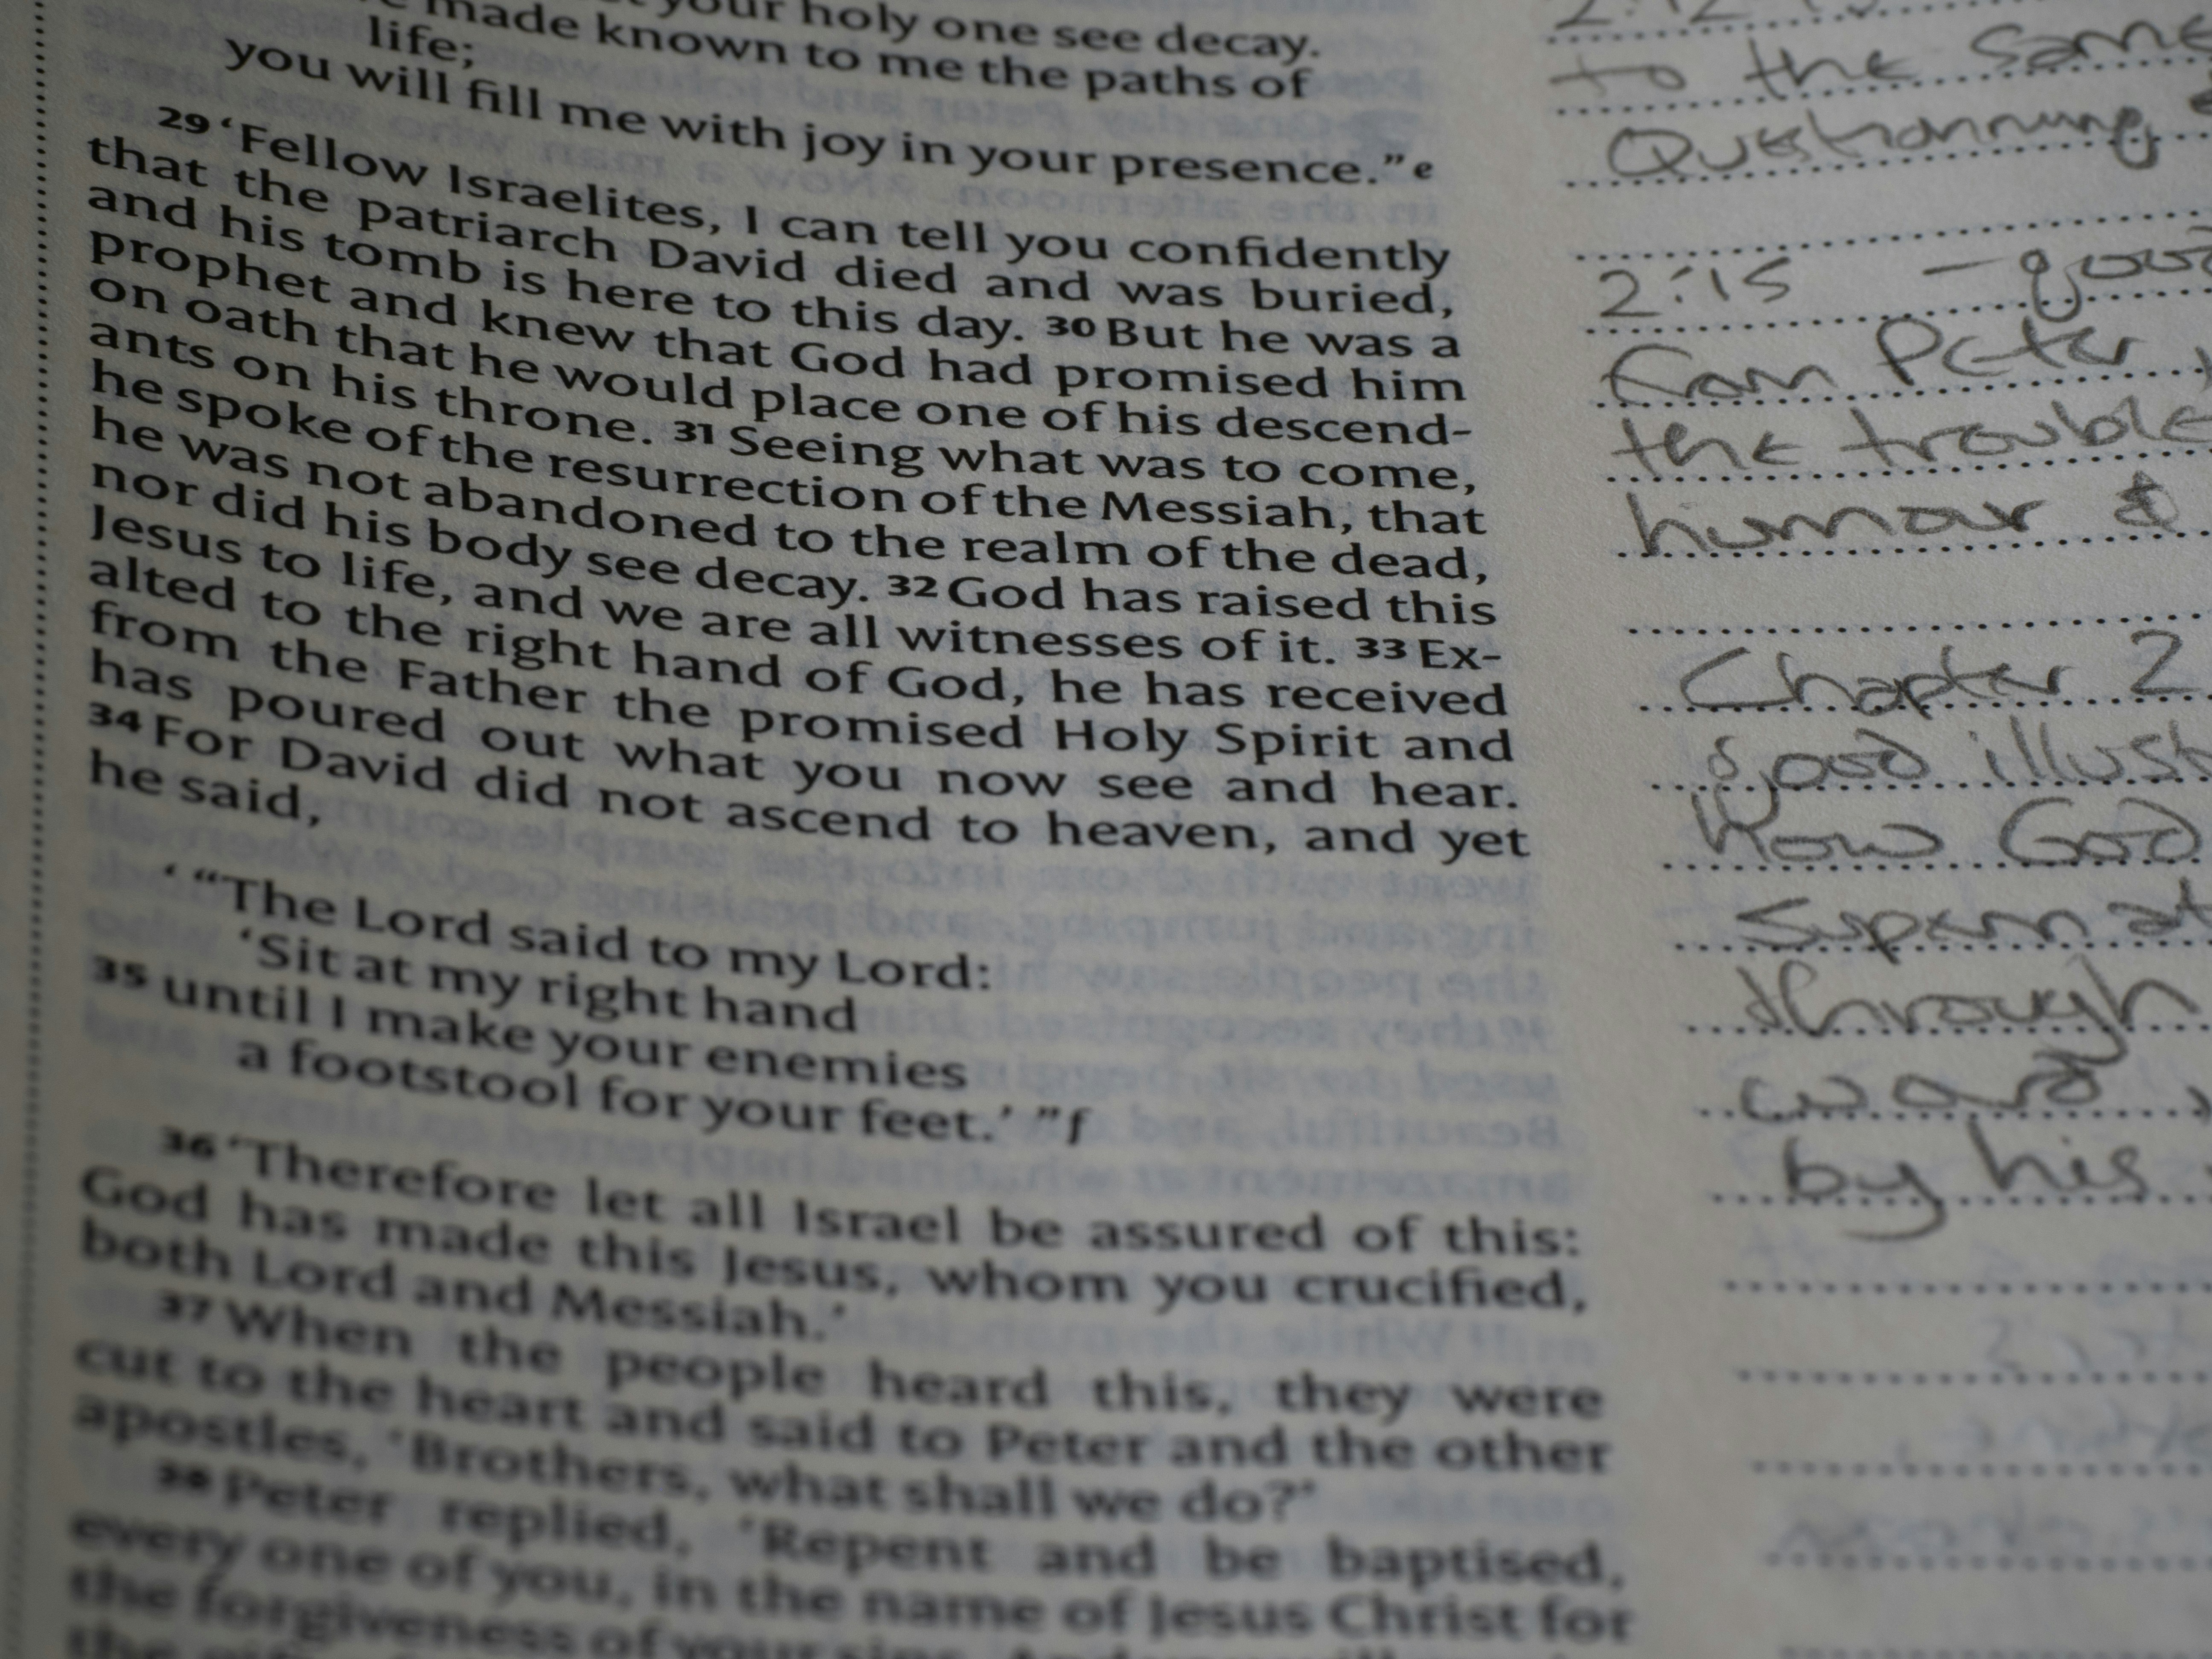 your holy one see decay.
made known to me the paths of
life;
you will fill me with joy in your presence.” e
29 ‘Fellow Israelites, I can tell you confidently
that the patriarch David died and was buried,
and his tomb is here to this day. 30 But he was a
prophet and knew that God had promised him
on oath that he would place one of his descend-
ants on his throne. 31 Seeing what was to come,
he spoke of the resurrection of the Messiah, that
he was not abandoned to the realm of the dead,
nor did his body see decay. 32 God has raised this
Jesus to life, and we are all witnesses of it. 33 Ex-
alted to the right hand of God, he has received
from the Father the promised Holy Spirit and
has poured out what you now see and hear.
34 For David did not ascend to heaven, and yet
he said,
‘ “The Lord said to my Lord:
‘Sit at my right hand
35 until I make your enemies
a footstool for your feet.’ ” f
36 ‘Therefore let all Israel be assured of this:
God has made this Jesus, whom you crucified,
both Lord and Messiah.’
37 When the people heard this, they were
cut to the heart and said to Peter and the other
apostles, ‘Brothers, what shall we do?’
38 Peter replied, ‘Repent and be baptised,
every one of you, in the name of Jesus Christ for
the forgiveness of your sins.
to the same
Questionning
2:15 - good
from Peter
the trouble
humour &
Chapter 2
good
How God
through
word
by his